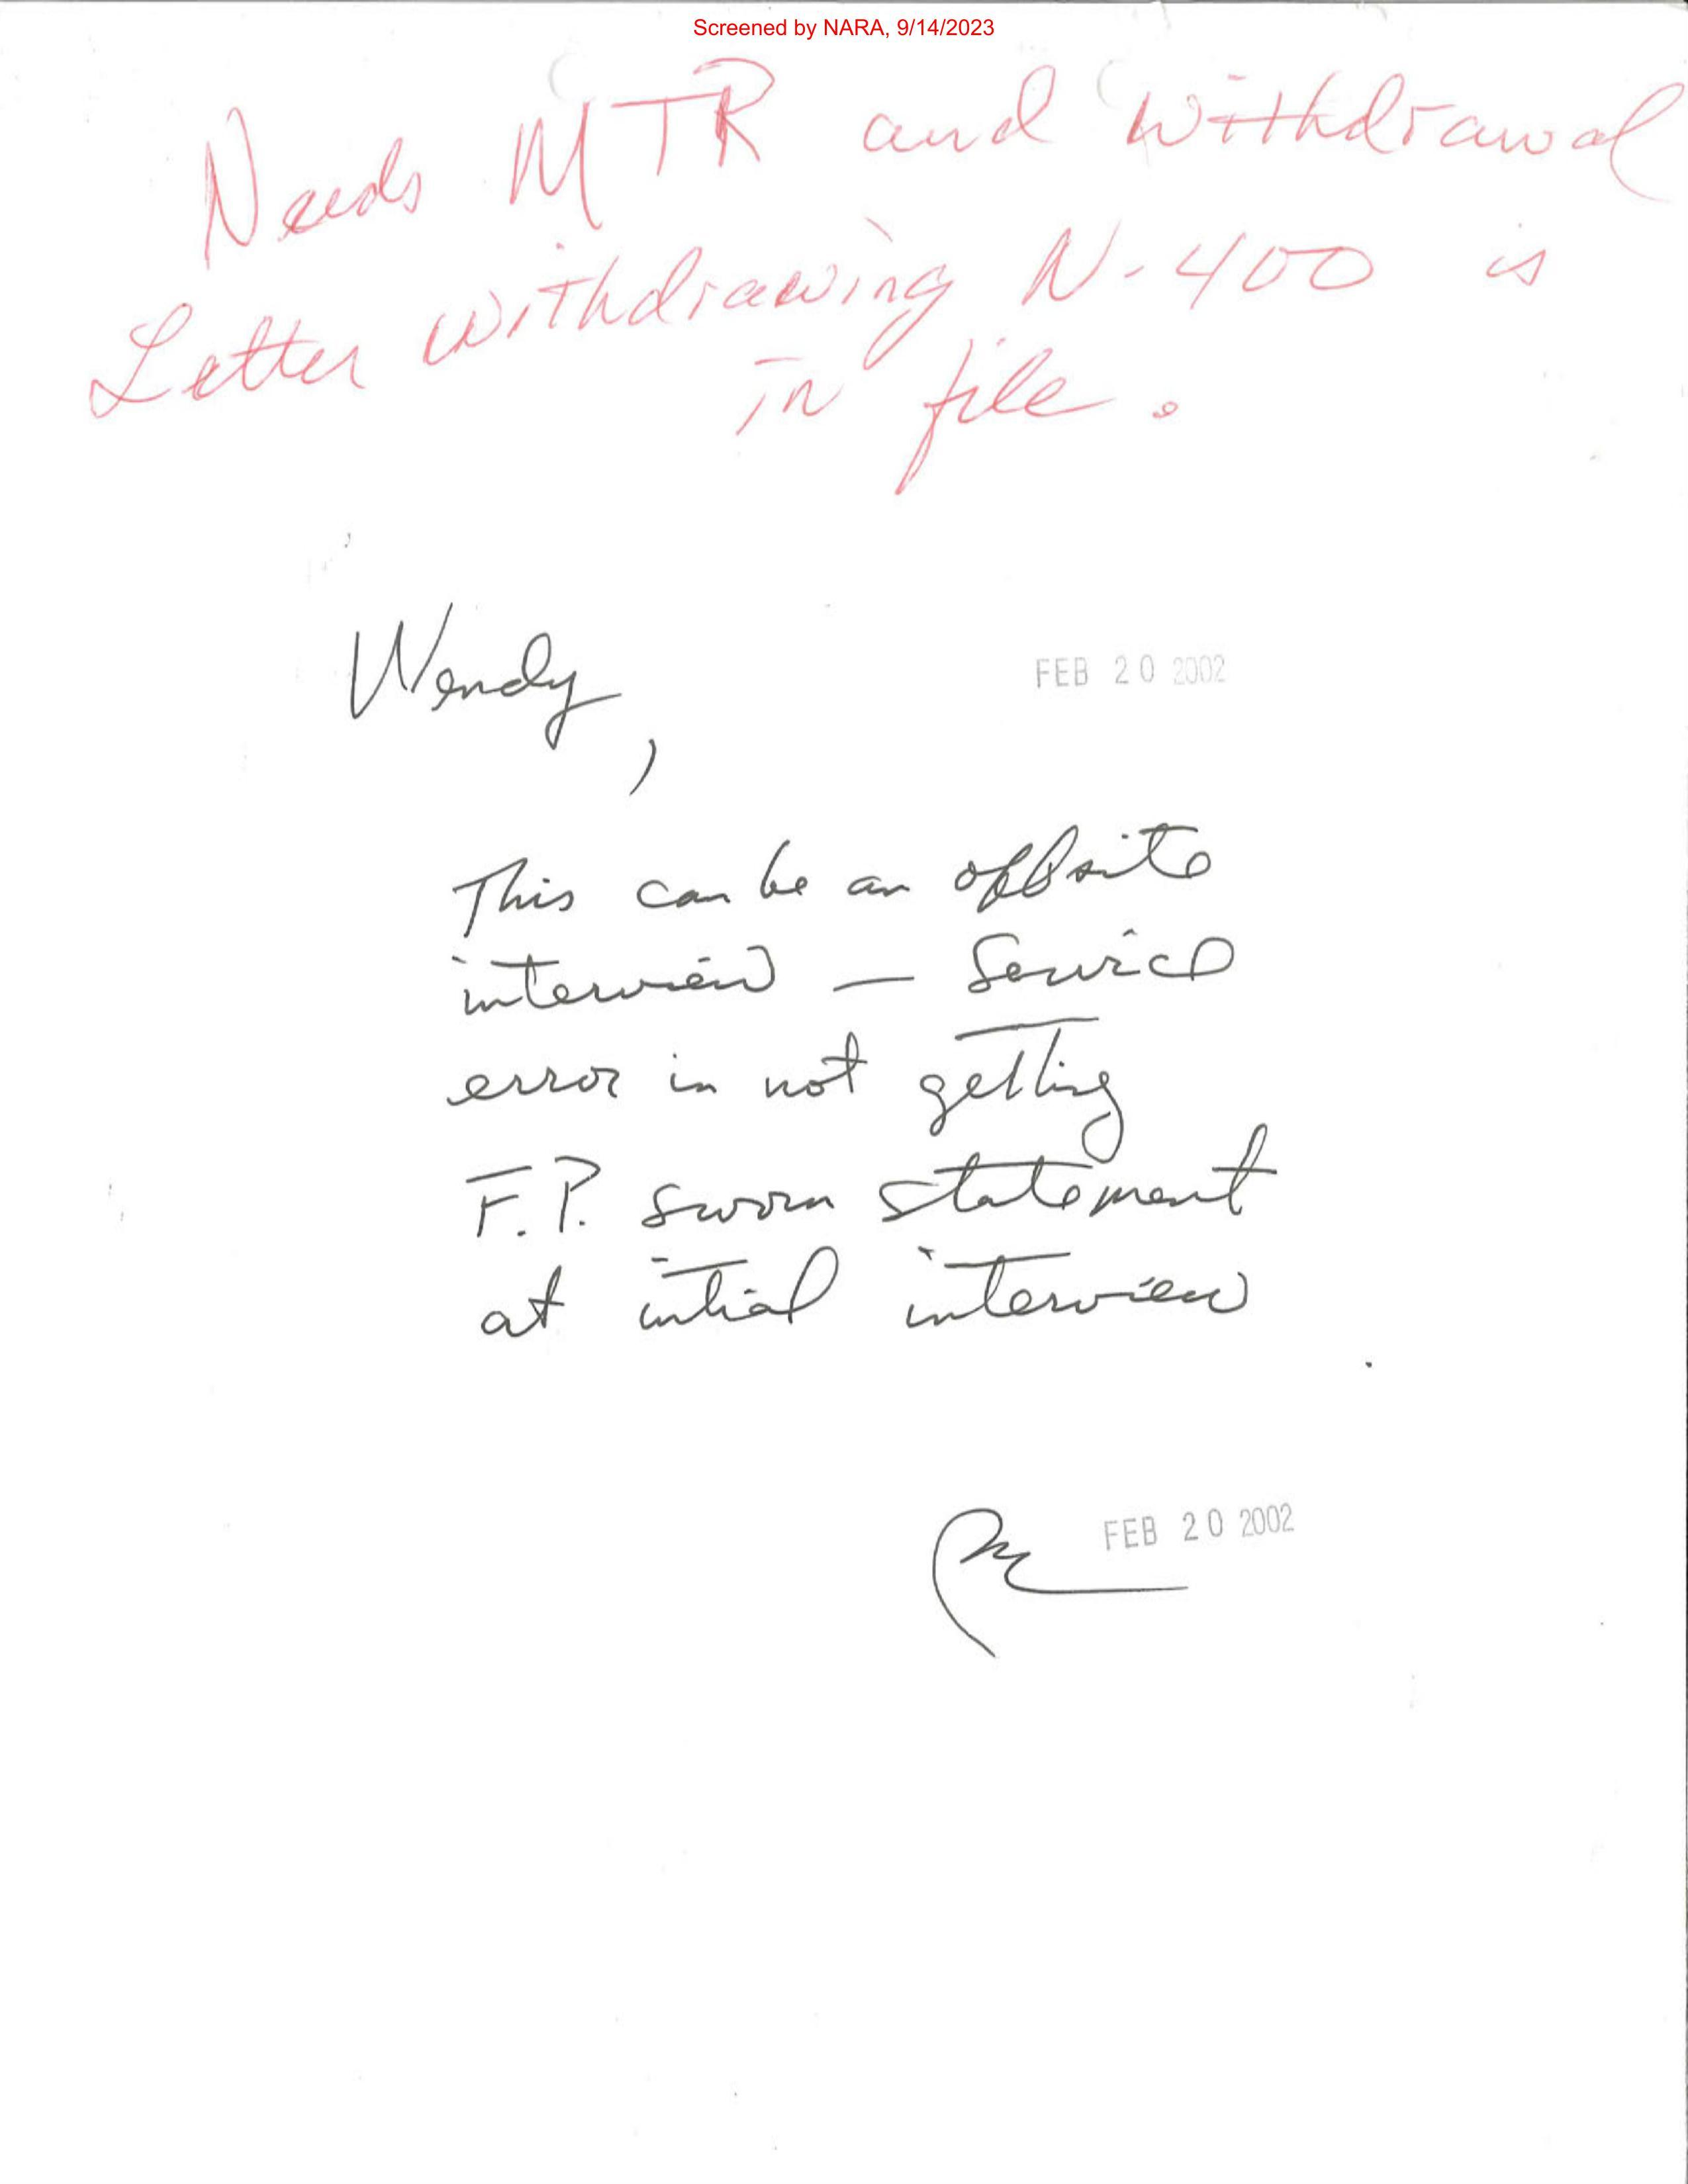 Screened by NARA, 9/14/2023
Needs MTR and Withdrawal
Letter withdrawing N-400 is
in file.
Wendy,
FEB 20 2002
This can be an offsite
interview — Service
error in not getting
F.P. sworn statement
at intial interview
FEB 20 2002